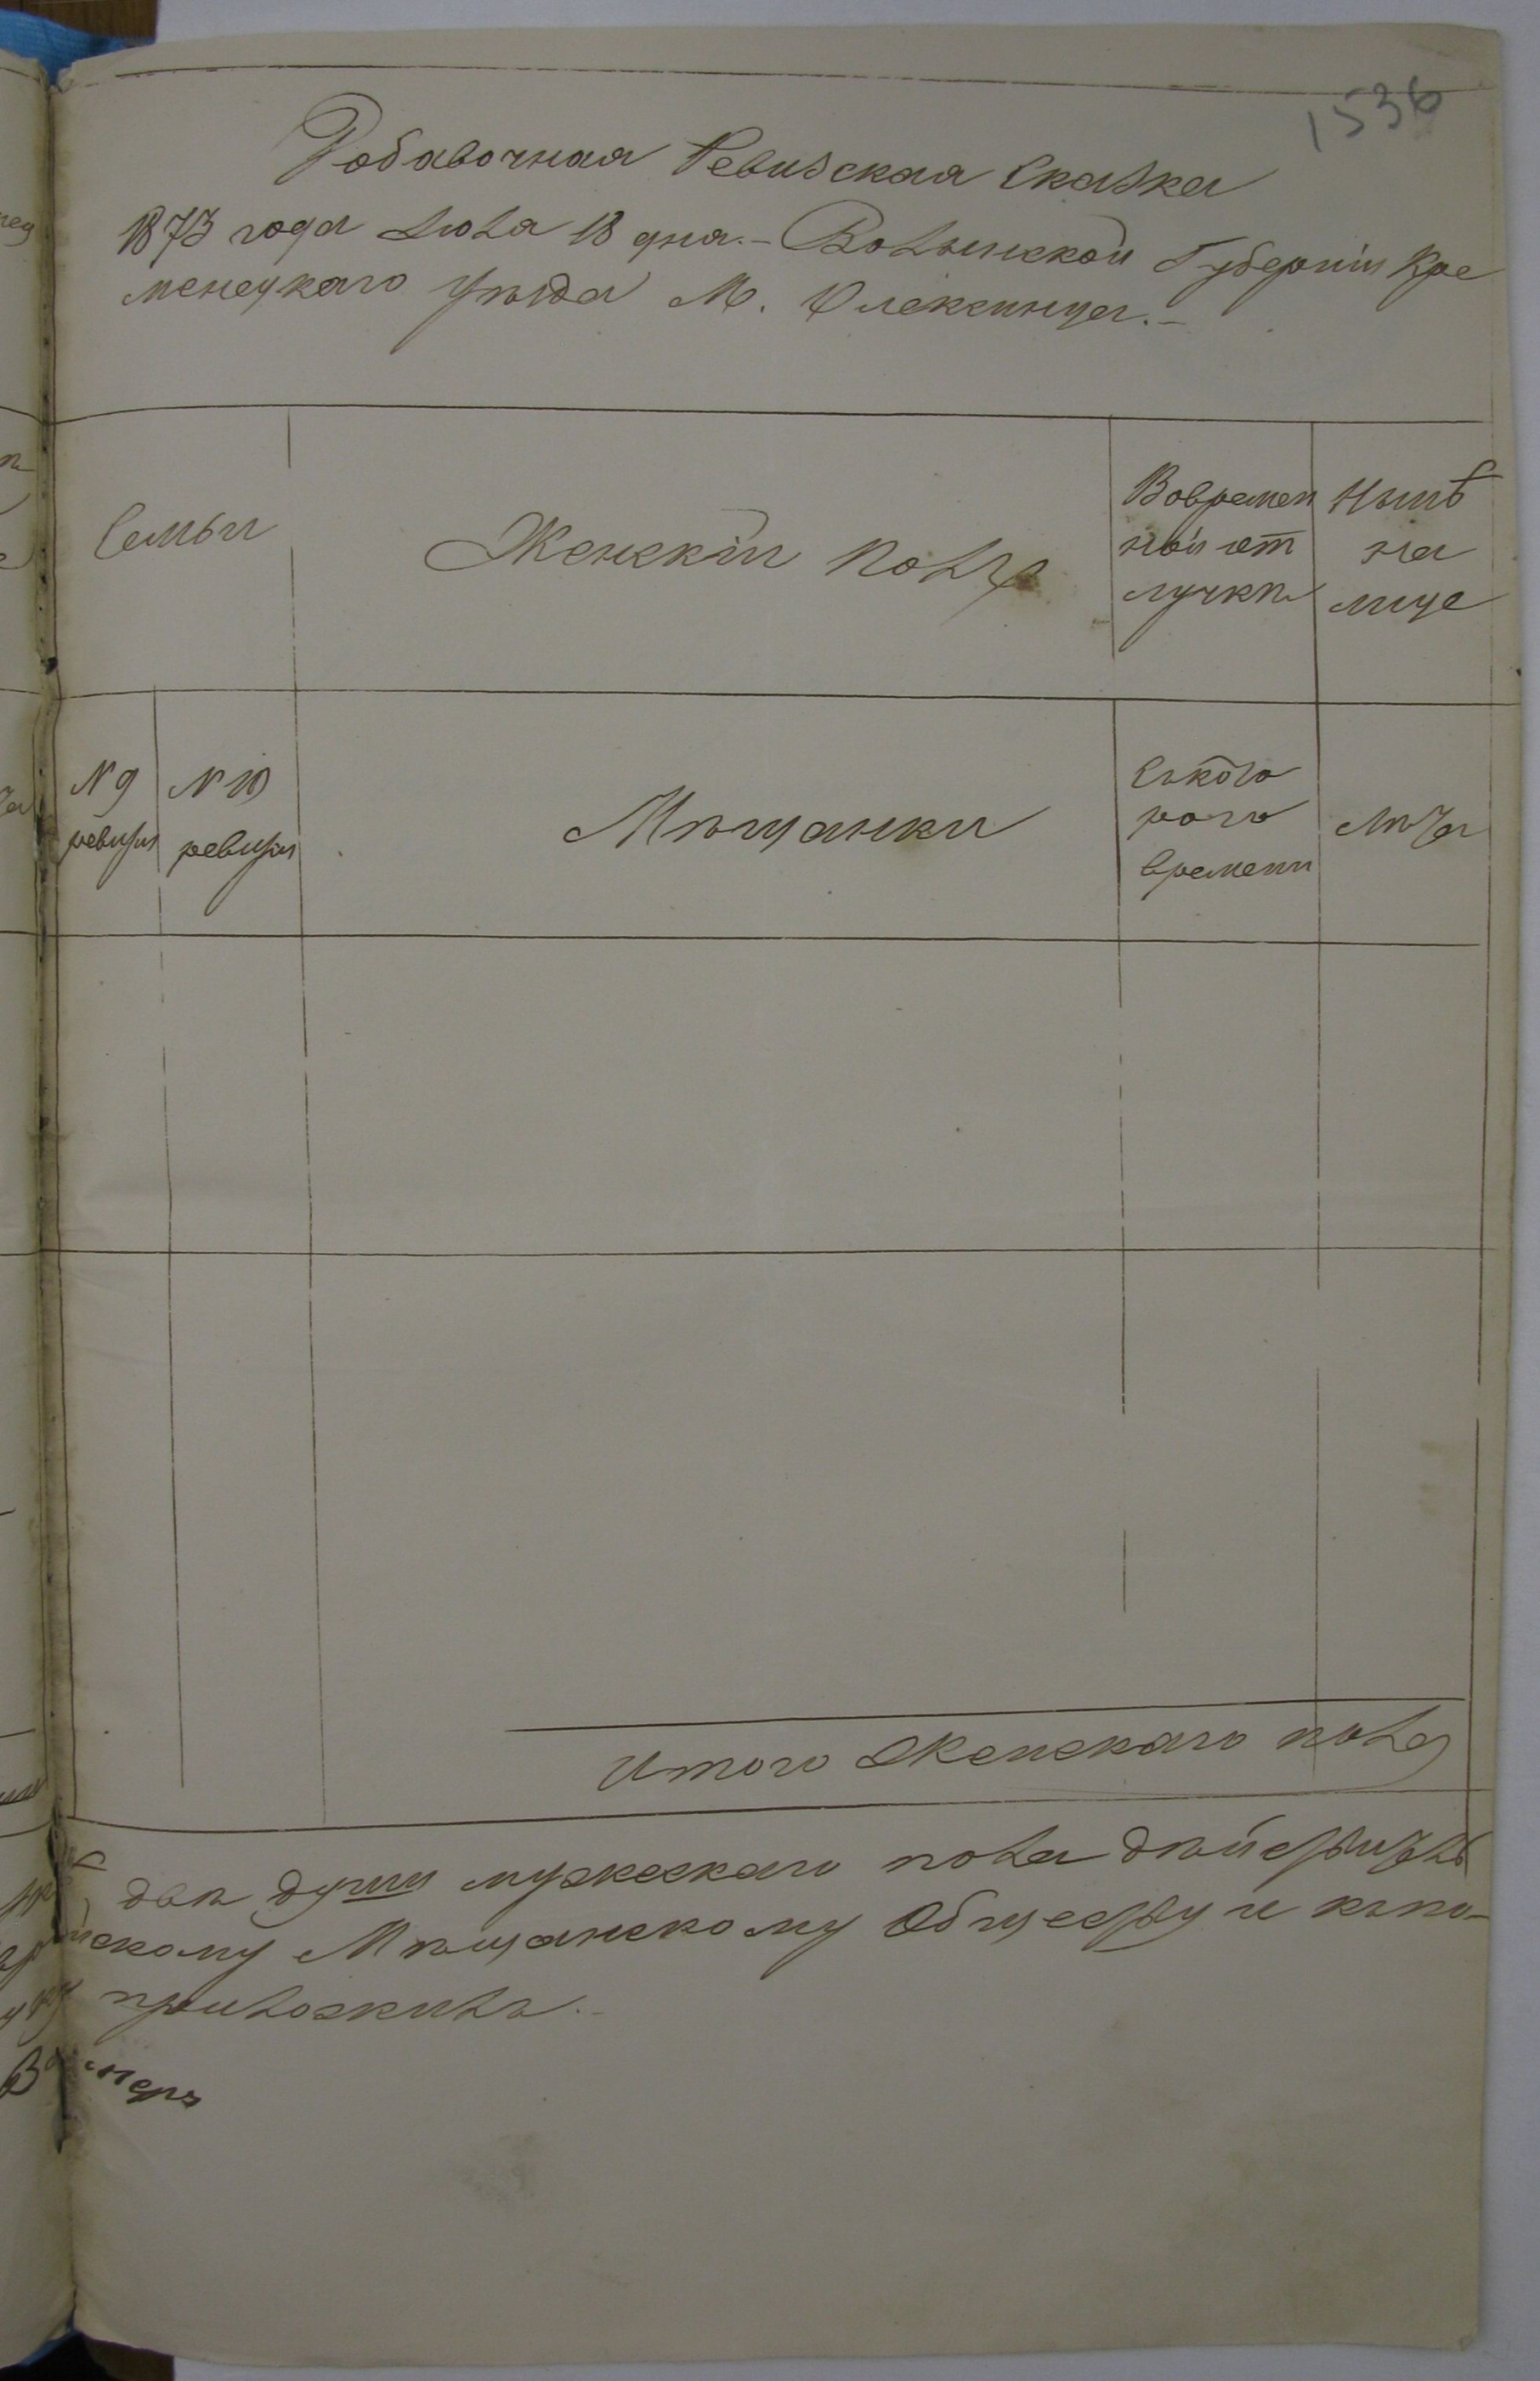 1536
Добавочная Ревизская Сказка
1873 года Июля 18 дня.- Волынской Губерніи Кре
менецкаго уѣзда М. Олексинца.-
Семьи
Женскій полъ
Вовремен
ной от
лучкѣ
Нынѣ
на
лице
N 9
ревизіи
N 10
ревизіи
Мѣщанки
Съкото
раго
времени
Лѣта
Итого Женскаго пола
двѣ души мужескаго пола дѣйствител
скому Мѣщанскому Обществу и къпо-
приложилъ.-